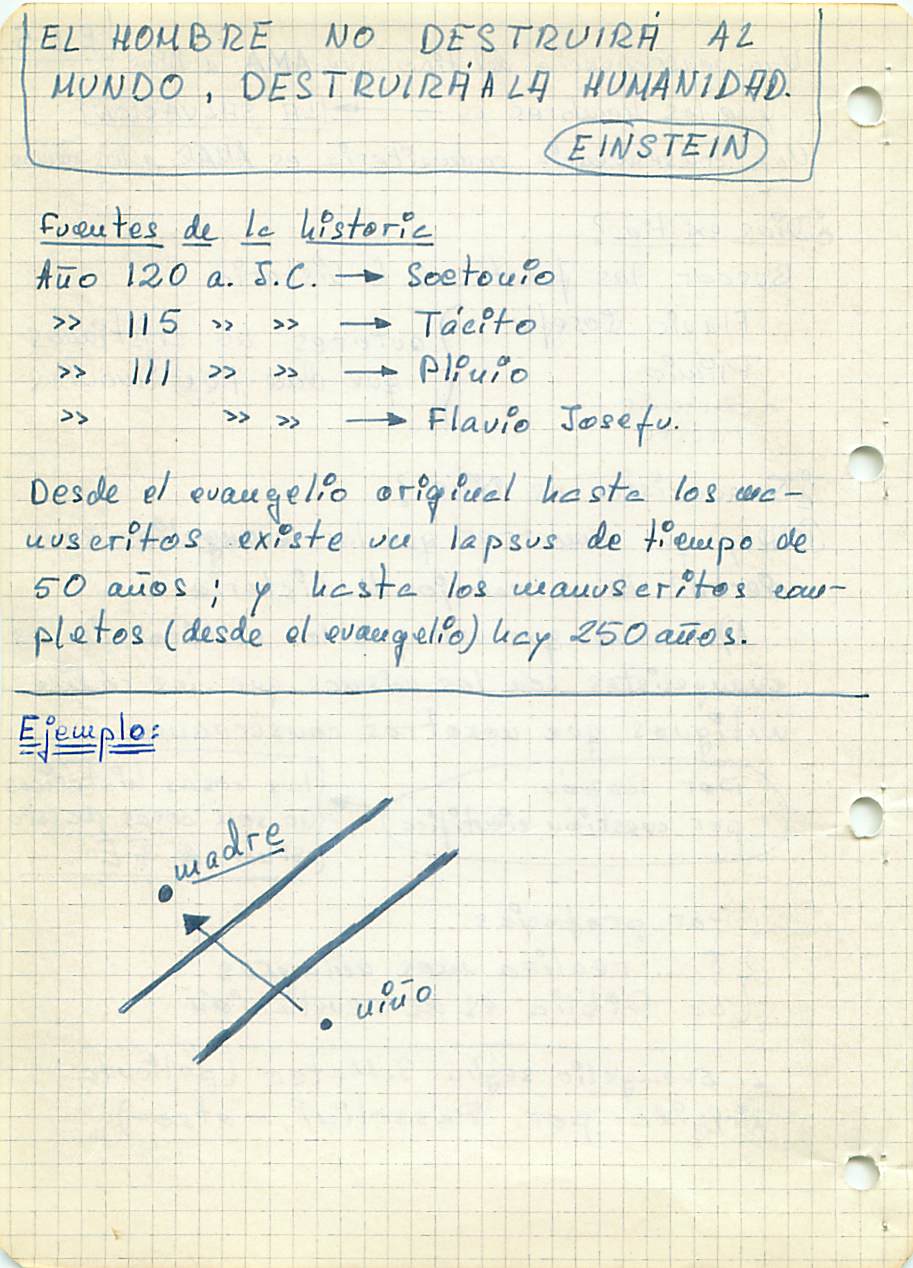 EL HOMBRE NO DESTRUIRÁ AL
MUNDO, DESTRUIRÁ A LA HUMANIDAD.
EINSTEIN
Fuentes de la historia
Año 120 a. J.C. → Soetonio
>> 115 >> >> → Tácito
>> 111 >> >> → Plinio
>> >> >> → Flavio Josefu.
Desde el evangelio original hasta los ma-
nuscritos existe un lapsus de tiempo de
50 años; y hasta los manuscritos com-
pletos (desde el evangelio) hay 250 años.
Ejemplo:
madre
niño